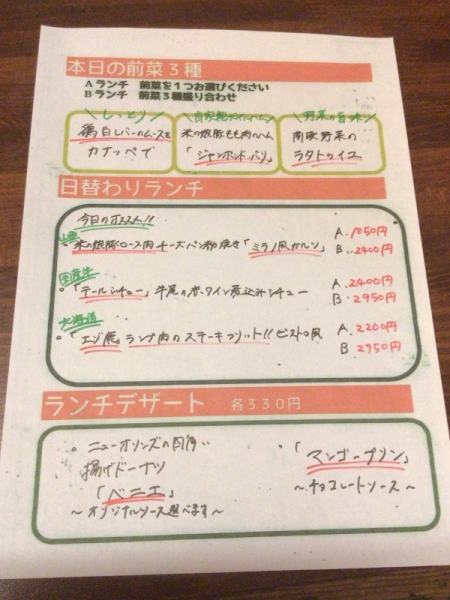 本日の前菜３種
Ａランチ 前菜を１つお選びください
Ｂランチ 前菜３種盛り合わせ
＼しっとり／
鶏白レバーのムースを
カナッペで
米の娘豚もも肉のハム
「ジャンボンド・パリ」
＼野菜の旨味／
南欧野菜の
ラタトゥイユ
日替わりランチ
今日のオススメ!!
米の娘豚ロース肉チーズパン粉焼き「ミラノ風カツレツ」 A.1850円
B.2400円
国産牛
。「テールシチュー」牛尾の赤ワイン煮込みシチュー A.2400円
B.2950円
北海道
。「エゾ鹿」ランプ肉のステーキフリット!!ビストロ風 A.2200円
B 2950円
ランチデザート 各３３０円
。ニューオリンズの
揚げドーナツ
「ベニエ」
～オリジナルソース選べます～
。「マンゴープリン」
～チョコレートソース～